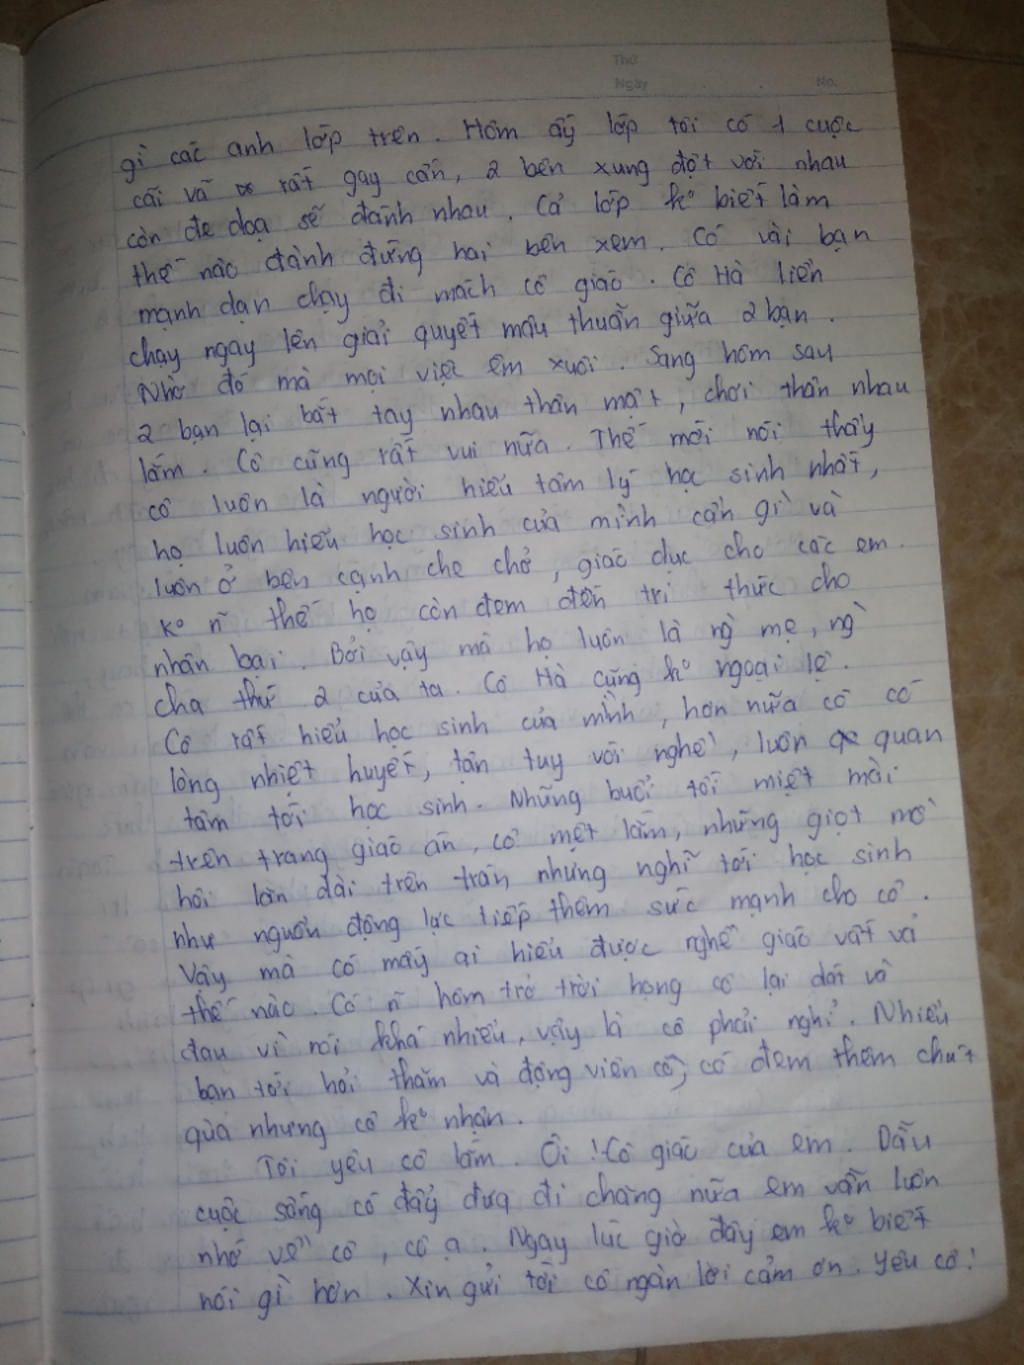 Thứ
Ngày No.
gì các anh lớp trên. Hôm ấy lớp tôi có 1 cuộc
cãi vã rất gay cấn, 2 bên xung đột với nhau
còn đe dọa sẽ đánh nhau. Cả lớp ko biết làm
thế nào đành đứng hai bên xem. Có vài bạn
mạnh dạn chạy đi mách cô giáo. Cô Hà liền
chạy ngay lên giải quyết mâu thuẫn giữa 2 bạn.
Nhờ đó mà mọi việc êm xuôi. Sang hôm sau
2 bạn lại bắt tay nhau thân mật, chơi thân nhau
lắm. Cô cũng rất vui nữa. Thế mới nói thầy
cô luôn là người hiểu tâm lý học sinh nhất,
họ luôn hiểu học sinh của mình cần gì và
luôn ở bên cạnh che chở, giáo dục cho các em.
Ko n~ thế họ còn đem đến tri thức cho
nhân loại. Bởi vậy mà họ luôn là ng` mẹ, ng`
cha thứ 2 của ta. Cô Hà cũng ko ngoại lệ.
Cô rất hiểu học sinh của mình, hơn nữa cô có
lòng nhiệt huyết, tận tuy với nghề, luôn quan
tâm tới học sinh. Những buổi tối miệt mài
trên trang giáo án, cô mệt lắm, những giọt mồ
hôi lăn dài trên trán nhưng nghĩ tới học sinh
như nguồn động lực tiếp thêm sức mạnh cho cô.
Vậy mà có mấy ai hiểu được nghề giáo vất vả
thế nào. Có n~ hôm trở trời họng cô lại dát và
đau vì nói khá nhiều, vậy là cô phải nghỉ. Nhiều
bạn tới hỏi thăm và động viên cô, có đem thêm chút
quà nhưng cô ko nhận.
Tôi yêu cô lắm. Ôi! Cô giáo của em. Dẫu
cuộc sống có đẩy đưa đi chăng nữa em vẫn luôn
nhớ về cô, cô ạ. Ngay lúc giờ đây em ko biết
nói gì hơn. Xin gửi tới cô ngàn lời cảm ơn. Yêu cô!